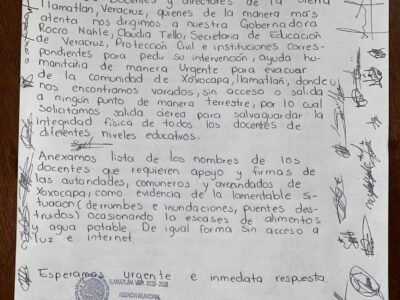 docentes y directores de la Sierra
Llamatlán, Veracruz, quienes de la manera más
atenta nos dirigimos a nuestra Gobernadora
Rocío Nahle, Claudia Tello, Secretaria de Educación
de Veracruz, Protección Civil e instituciones corres-
pondientes para pedir su intervención, ayuda hu-
manitaria de manera Urgente para evacuar
de la comunidad de Xoxocapa, Ilamatlán, donde
nos encontramos varados, sin acceso o salida
a ningún punto de manera terrestre, por lo cual
Solicitamos salida aérea para salvaguardar la
integridad física de todos los docentes de
diferentes niveles educativos.
Anexamos lista de los nombres de los
docentes que requieren apoyo y firmas de
las autoridades, comuneros y avecindados de
Xoxocapa, como evidencia de la lamentable si-
tuación (derrumbes e inundaciones, puentes des-
truidos) ocasionando la escases de alimentos
y agua potable. De igual forma sin acceso a
luz e internet.
Esperamos urgente e inmediata respuesta.
ILAMATLÁN, VER. 2022-2026
AGENCIA MUNICIPAL